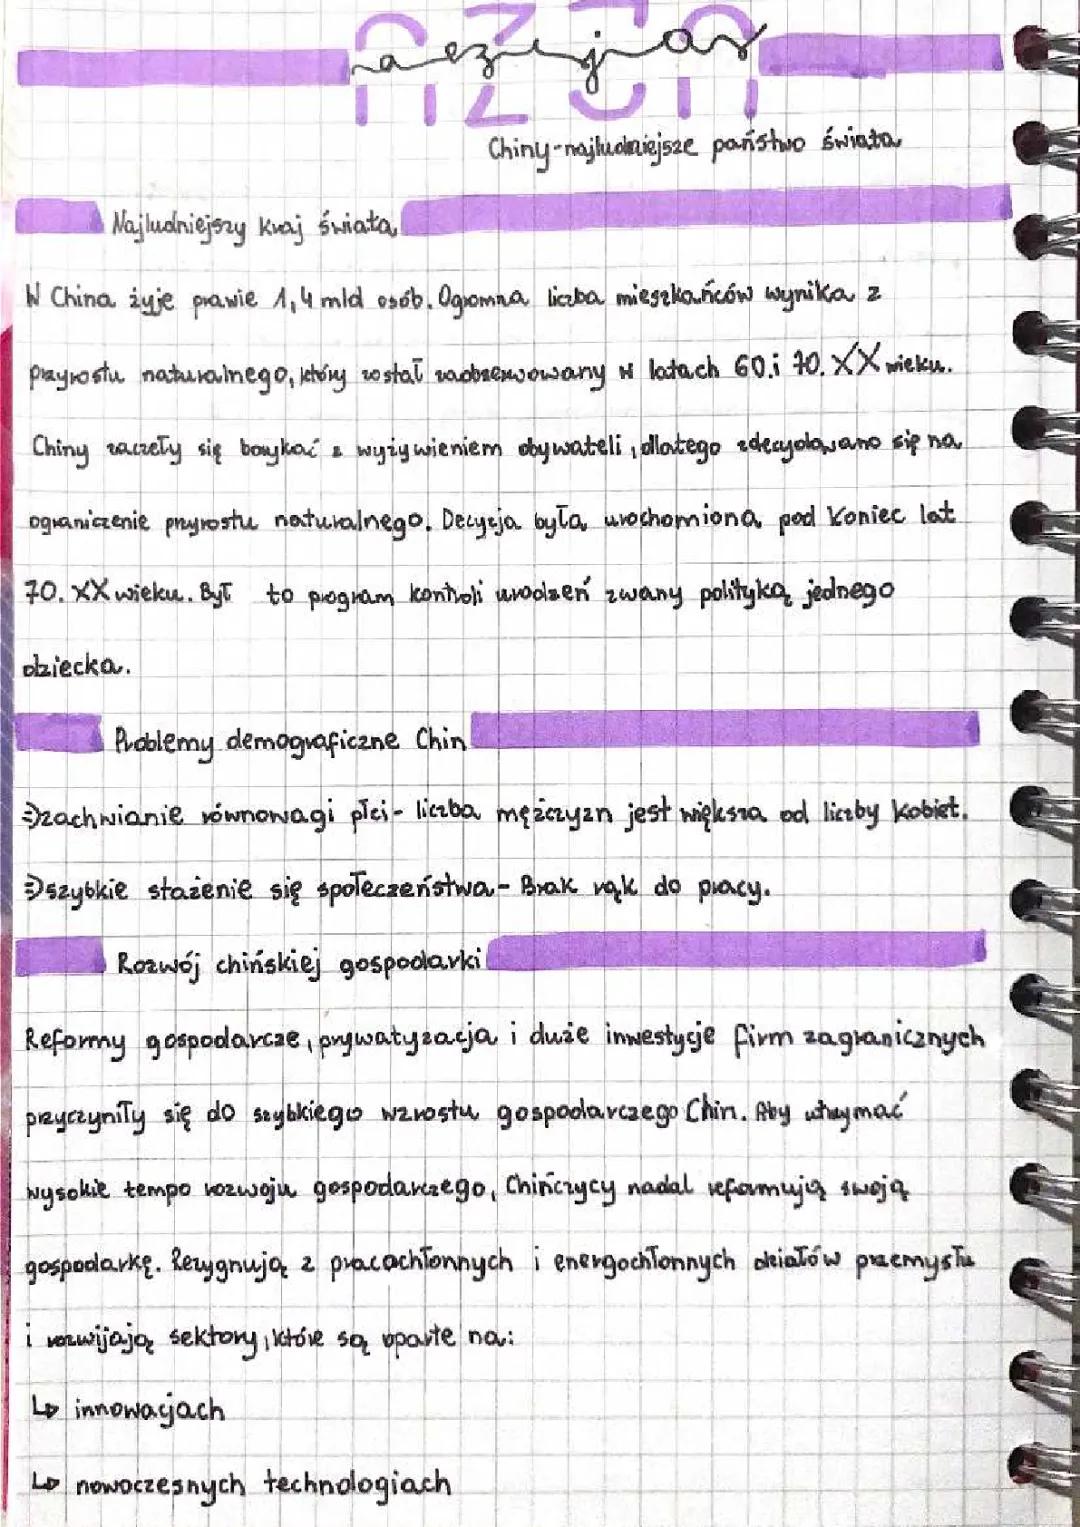 azja
AZJA
Chiny-najludniejsze państwo świata
Najludniejszy kraj świata
W China żyje prawie 1,4 mld osób. Ogromna liczba mieszkańców wynika z
przyrostu naturalnego, który został zaobserwowany w latach 60.i 70. XX wieku.
Chiny zaczęły się borykać z wyżywieniem obywateli, dlatego zdecydowano się na
ograniczenie przyrostu naturalnego. Decyzja była uruchomiona pod koniec lat
70. XX wieku. Był to program kontroli urodzeń zwany polityką jednego
dziecka.
Problemy demograficzne Chin
⇒zachwianie równowagi płci- liczba mężczyzn jest większa od liczby kobiet.
⇒szybkie stażenie się społeczeństwa- Brak rąk do pracy.
Rozwój chińskiej gospodarki
Reformy gospodarcze, prywatyzacja i duże inwestycje firm zagranicznych
przyczyniły się do szybkiego wzrostu gospodarczego Chin. Aby utrzymać
wysokie tempo rozwoju gospodarczego, Chińczycy nadal reformują swoją
gospodarkę. Rezygnują z pracochłonnych i energochłonnych działów przemysłu
i rozwijają sektory, które są oparte na:
↳ innowacjach
↳ nowoczesnych technologiach